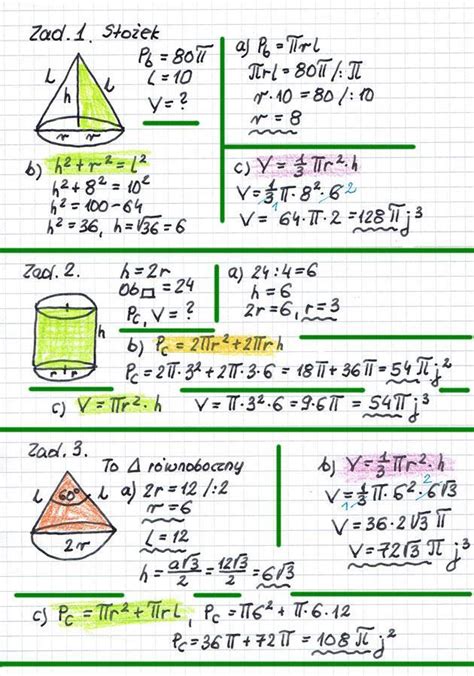 Zad. 1. Stożek
P_b = 80π
l = 10
V = ?
l h l
r r
a) P_b = πrl
πrl = 80π /: π
r·10 = 80 /: 10
r = 8
b) h² + r² = l²
h² + 8² = 10²
h² = 100 - 64
h² = 36, h = √36 = 6
c) V = 1/3 πr²·h
V = 1/3 π·8²·6 2
1
V = 64π·2 = 128π j³
Zad. 2.
h = 2r
Ob□ = 24
P_c, V = ?
h
r r
a) 24 : 4 = 6
h = 6
2r = 6, r = 3
b) P_c = 2πr² + 2πrh
P_c = 2π·3² + 2π·3·6 = 18π + 36π = 54π j²
c) V = πr²·h V = π·3²·6 = 9·6π = 54π j³
Zad. 3.
To Δ równoboczny
l 60° l
2r
a) 2r = 12 /:2
r = 6
l = 12
h = a√3/2 = 12√3/2 = 6√3
b) V = 1/3 πr²·h
V = 1/3 π·6²·6√3
1 2
V = 36·2√3 π
V = 72√3 π j³
c) P_c = πr² + πrl, P_c = π6² + π·6·12
P_c = 36π + 72π = 108π j²